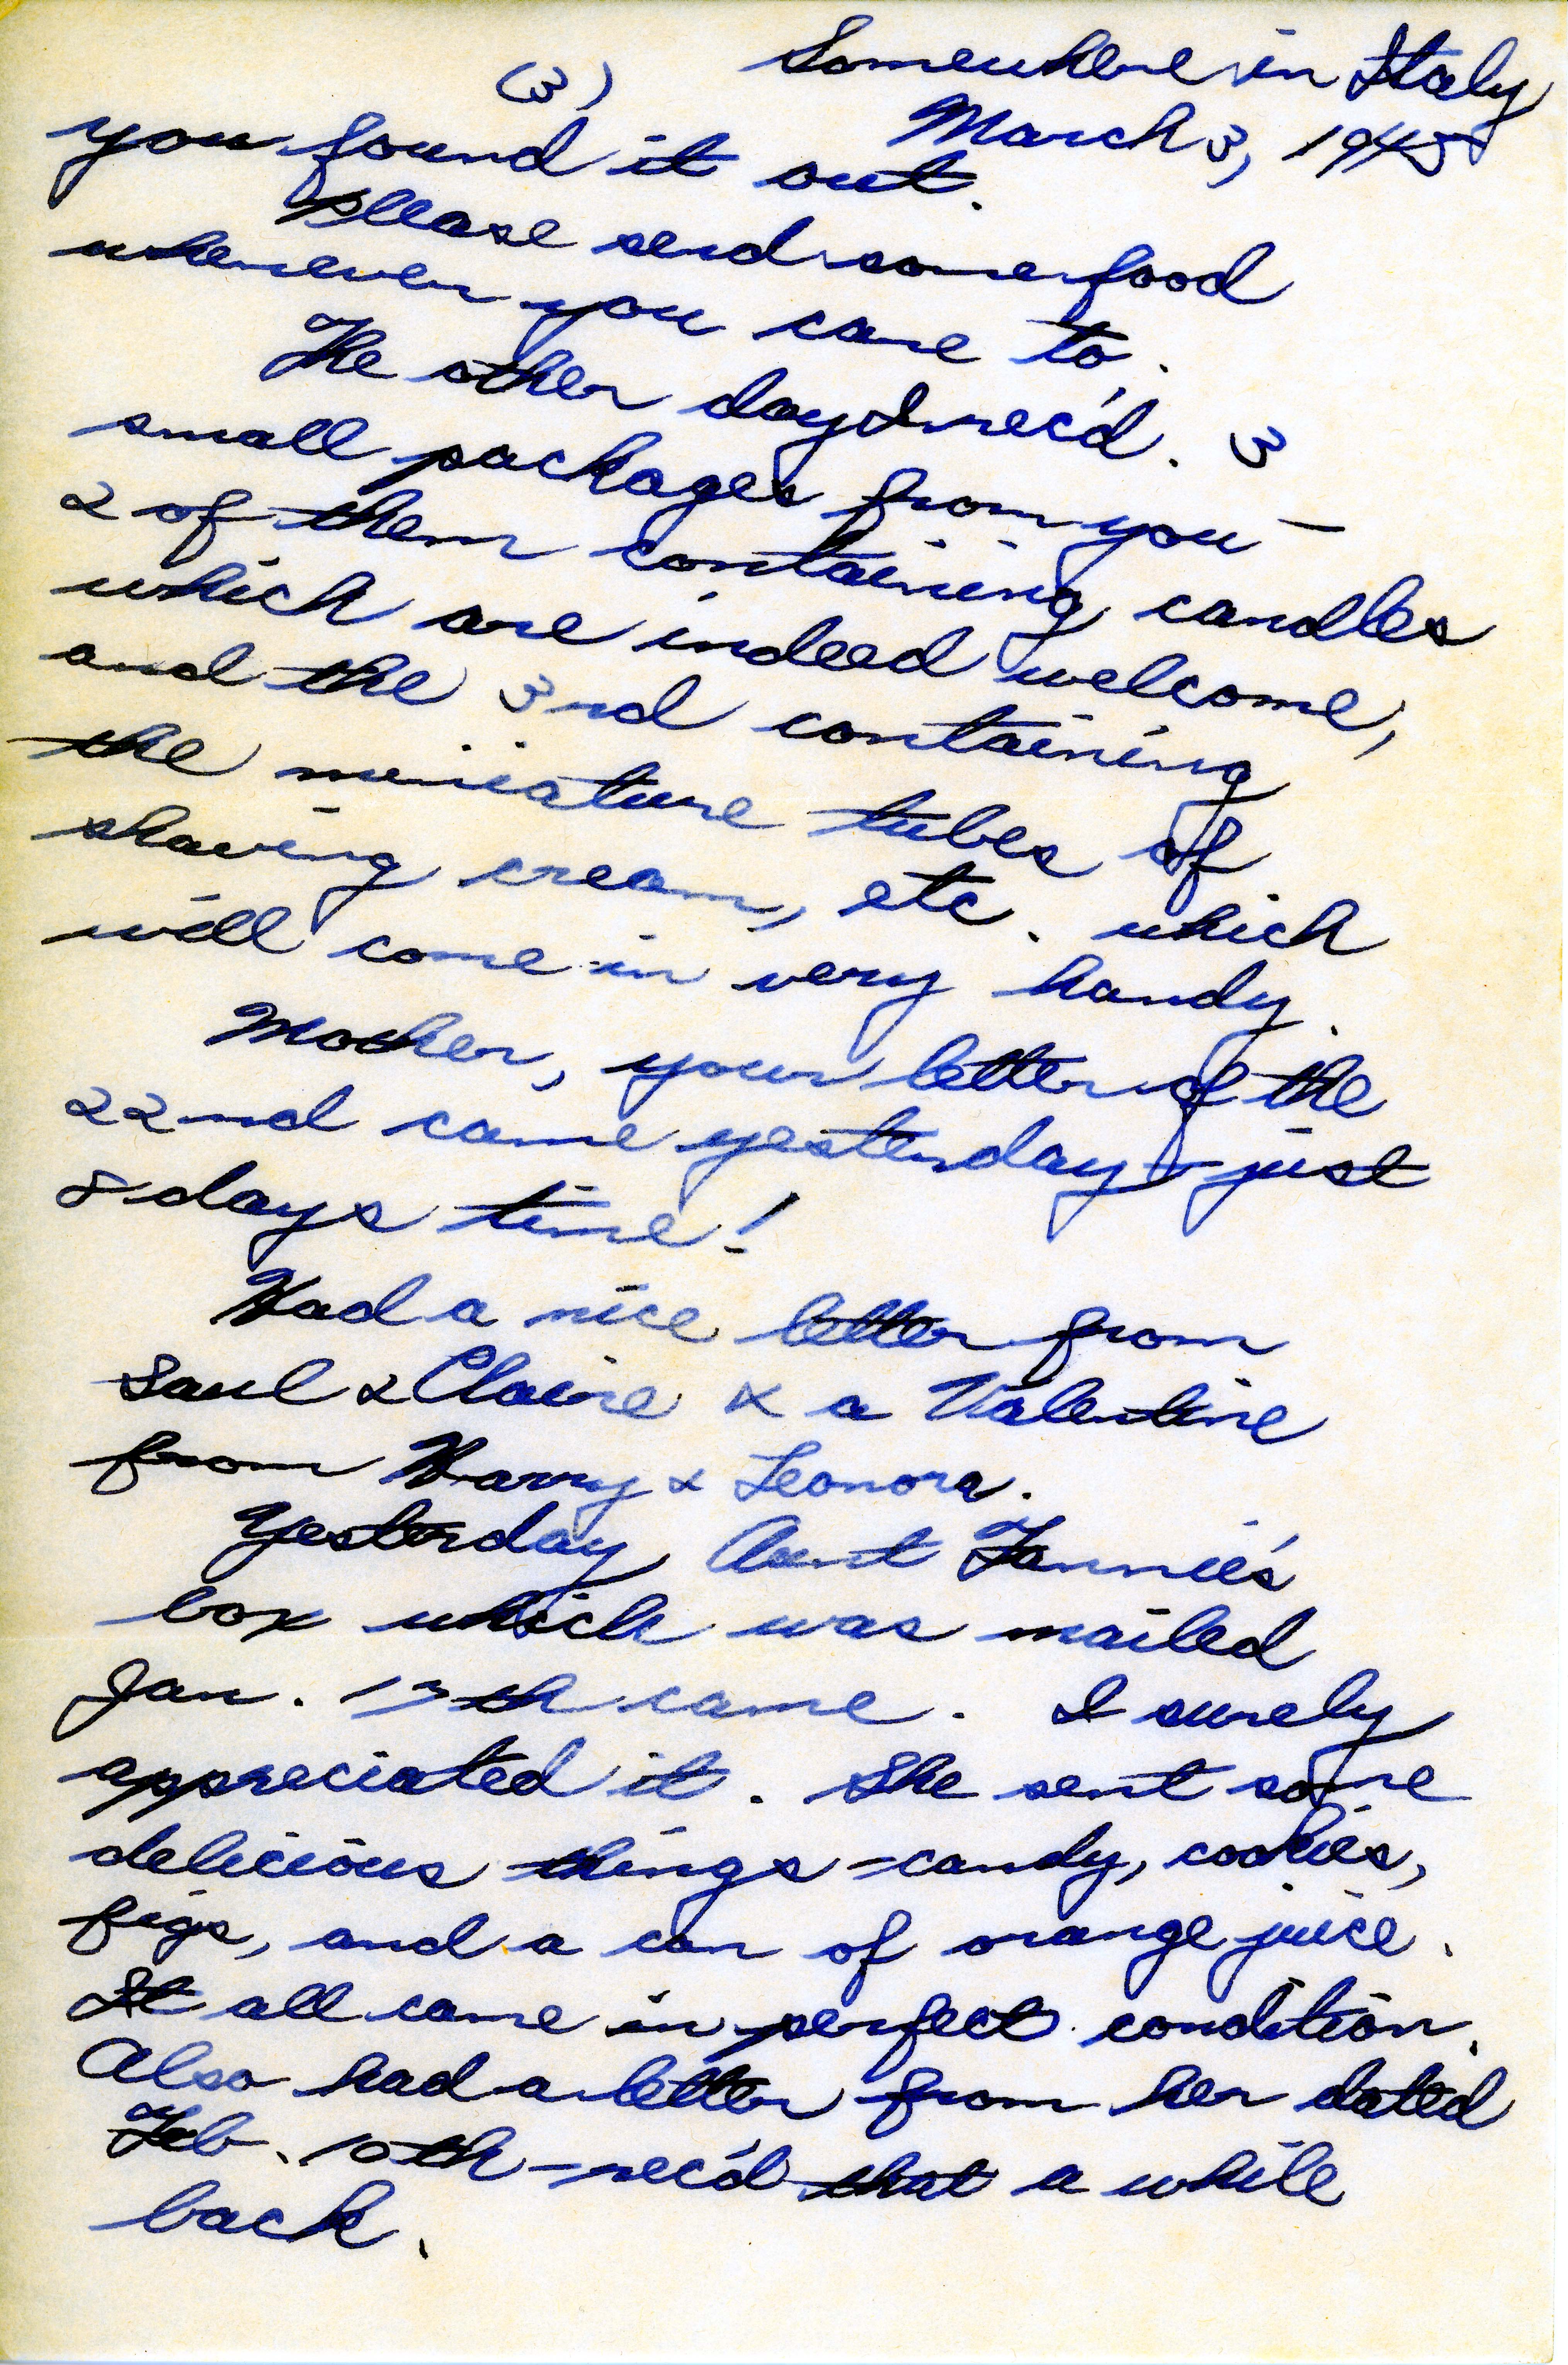 Somewhere in Italy
(3)
March 3, 1945
you found it out.
Please send some food
whenever you care to.
The other day I rec'd. 3
small packages from you —
2 of them containing candles
which are indeed welcome,
and the 3rd containing
the miniature tubes of
shaving cream, etc. which
will come in very handy.
Mother, your letter of the
22nd came yesterday - just
8 days time!
Had a nice letter from
Saul & Claire & a Valentine
from Harry & Leonora.
Yesterday, Aunt Fannie's
box which was mailed
Jan. 13th came. I surely
appreciated it. She sent some
delicious things - candy, cookies,
figs, and a can of orange juice.
It all came in perfect condition.
Also had a letter from her dated
Feb. 10th - rec'd that a while
back.